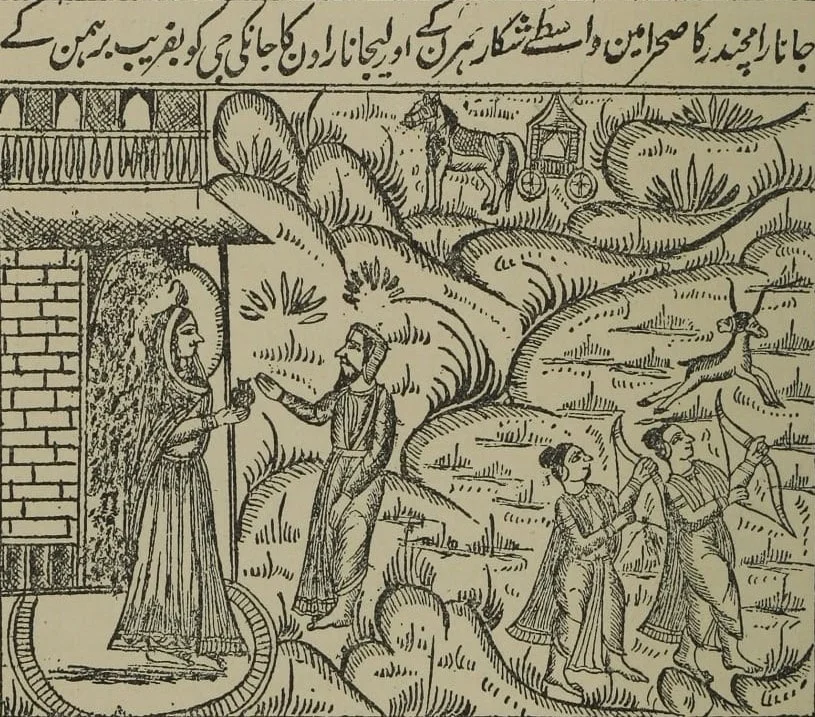 جانا رامچندر کا صحرا مین واسطے شکار ہرن کے اور لیجانا راون کا جانکی جی کو بفریب برہمن کے